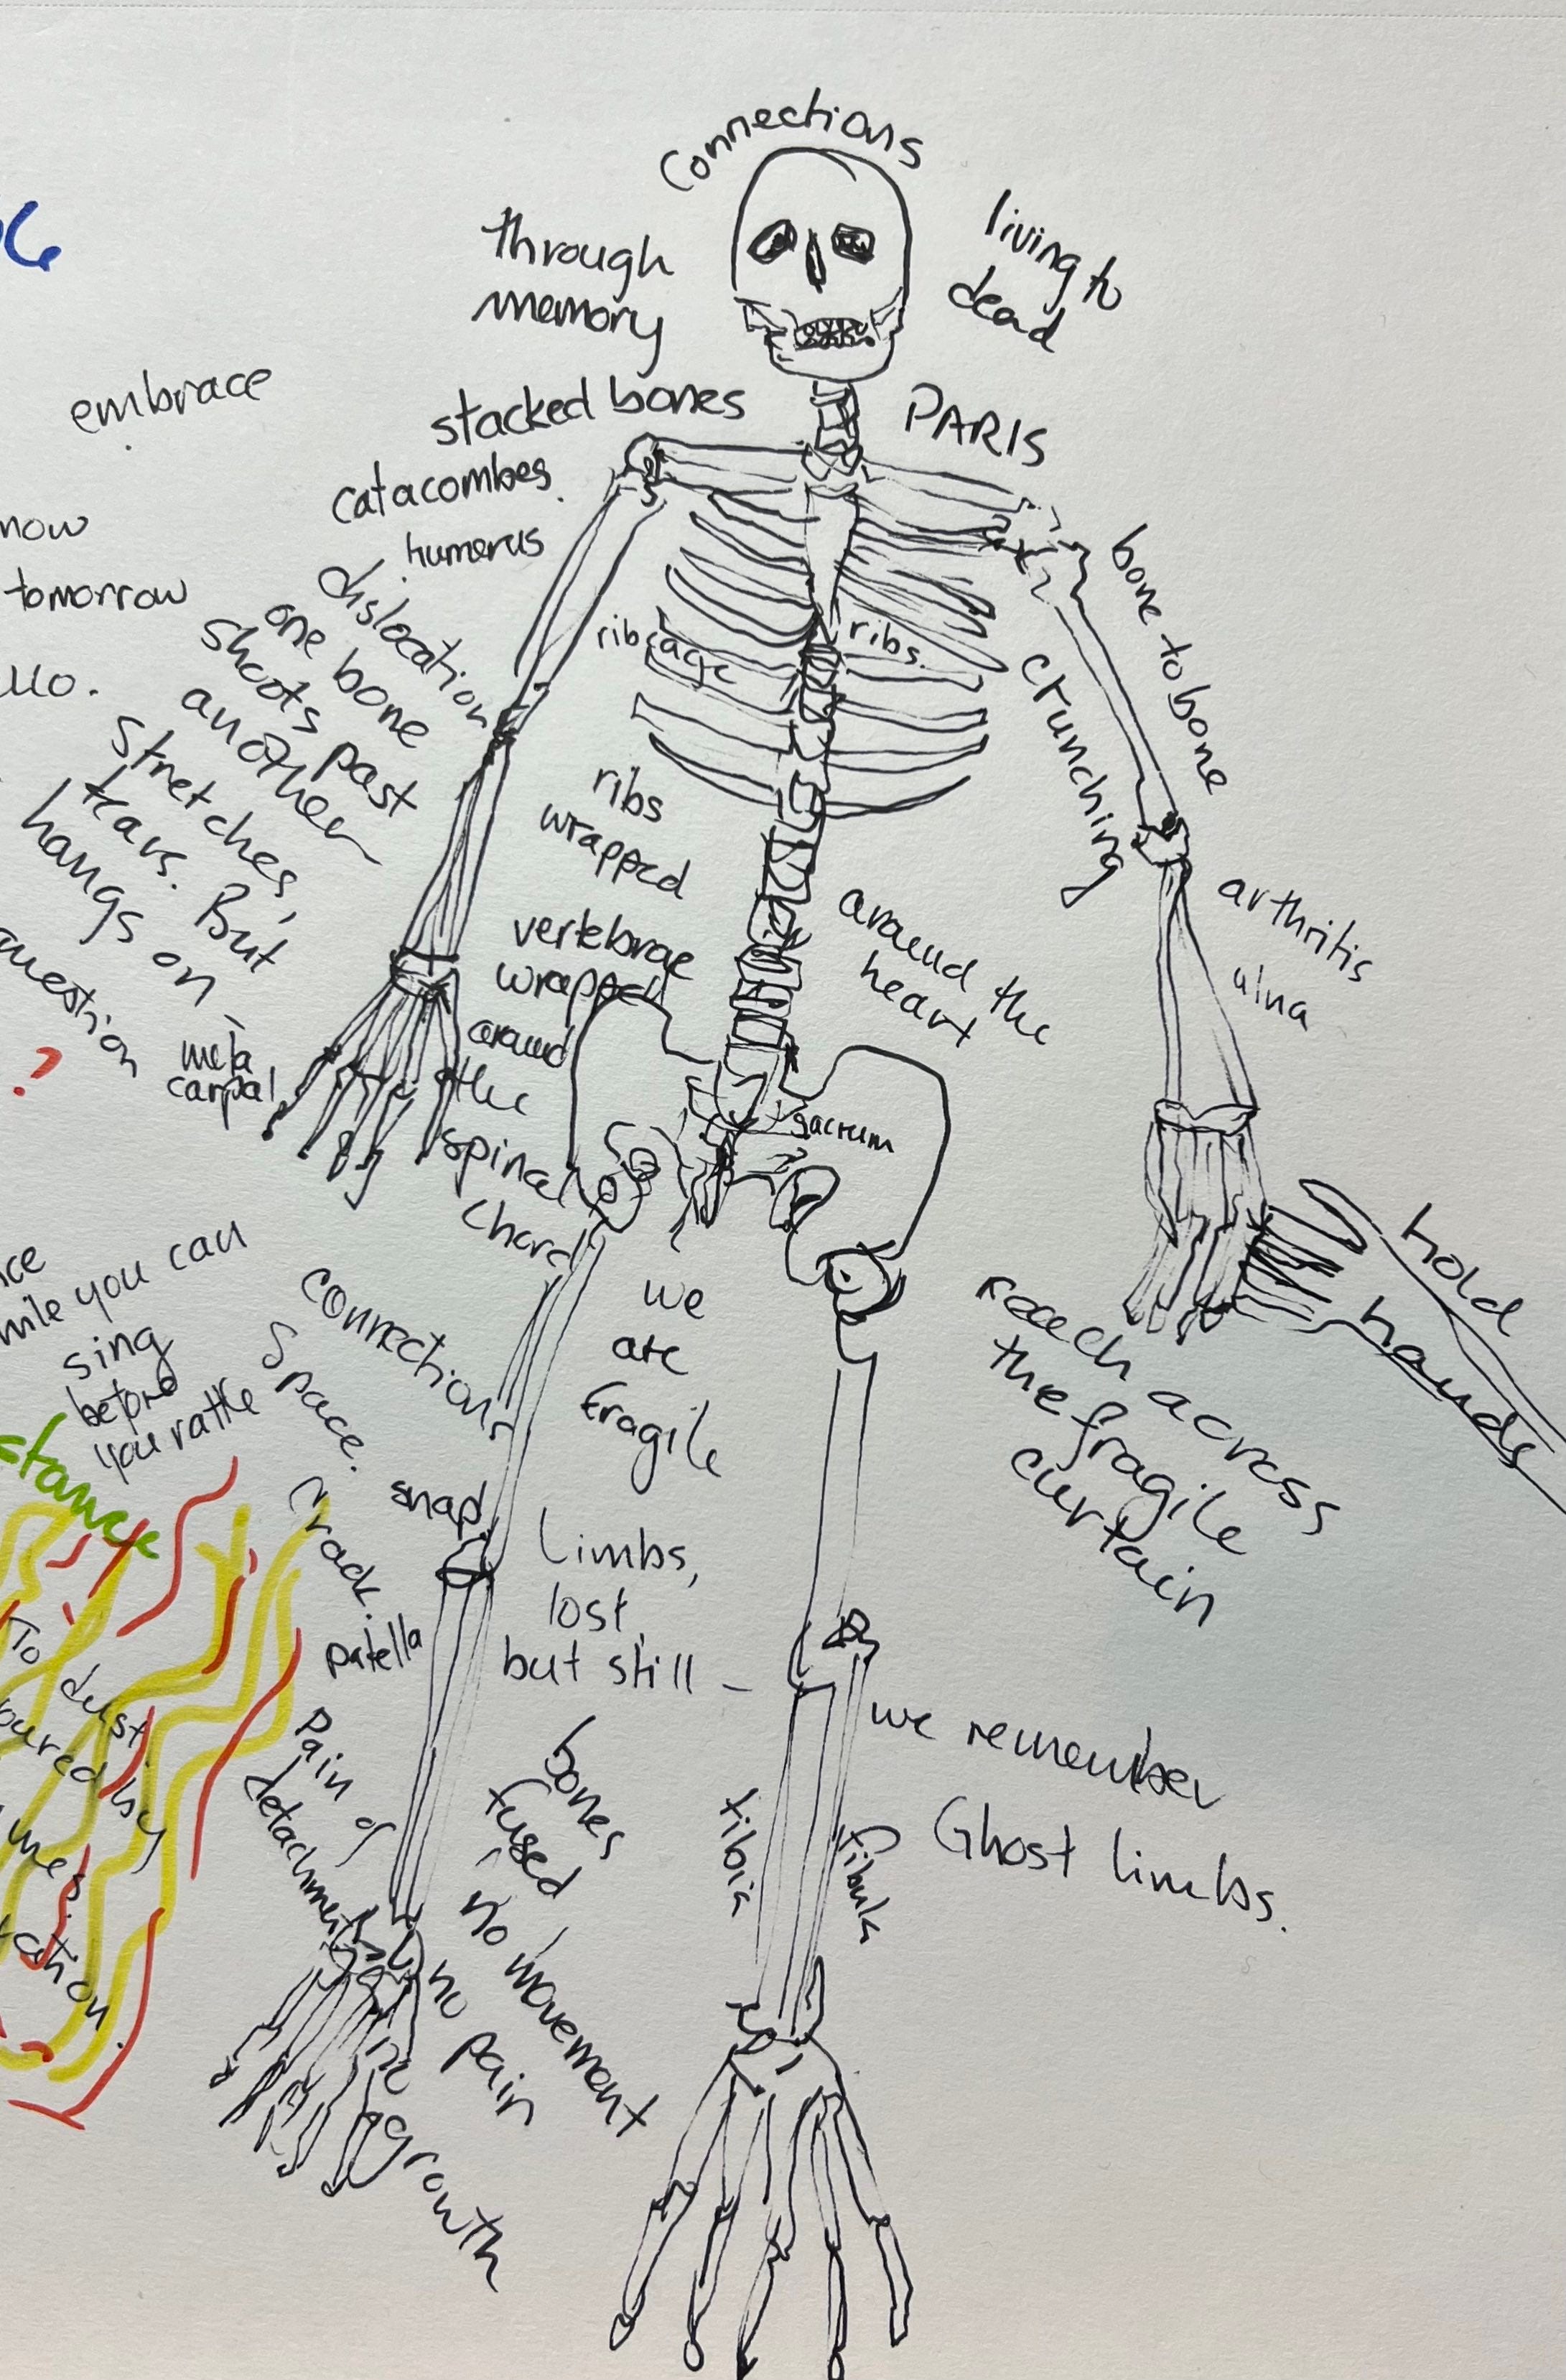 Connections
through
memory
living to
dead
embrace
stacked bones
PARIS
catacombes.
humerus
now
tomorrow
dislocation
one bone
shoots past
another
stretches,
tears. But
hangs on
question
?
meta
carpal
rib cage
ribs.
bone to bone
crunching
arthritis
ulna
ribs
wrapped
around the
heart
vertebrae
wrapped
around
the
spinal
chord
sacrum
hold
hands
reach across
the fragile
curtain
while you can
sing
before
you rattle
connections
space.
snap.
crack.
patella
we
are
fragile
Limbs,
lost,
but still -
we remember
Ghost limbs.
tibia
fibula
Pain of
detachment
bones
fused
no movement
no pain
no growth
To dust.
by